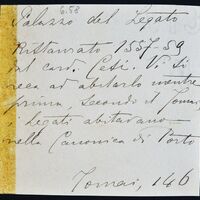 6.58
Palazzo del Legato
Restaurato 1557-59
dal card. Cesi. Vi si
reca ad abitarlo mentre
prima, secondo il Tomai,
i Legati abitavano
nella Canonica di Porto
Tomai, 146